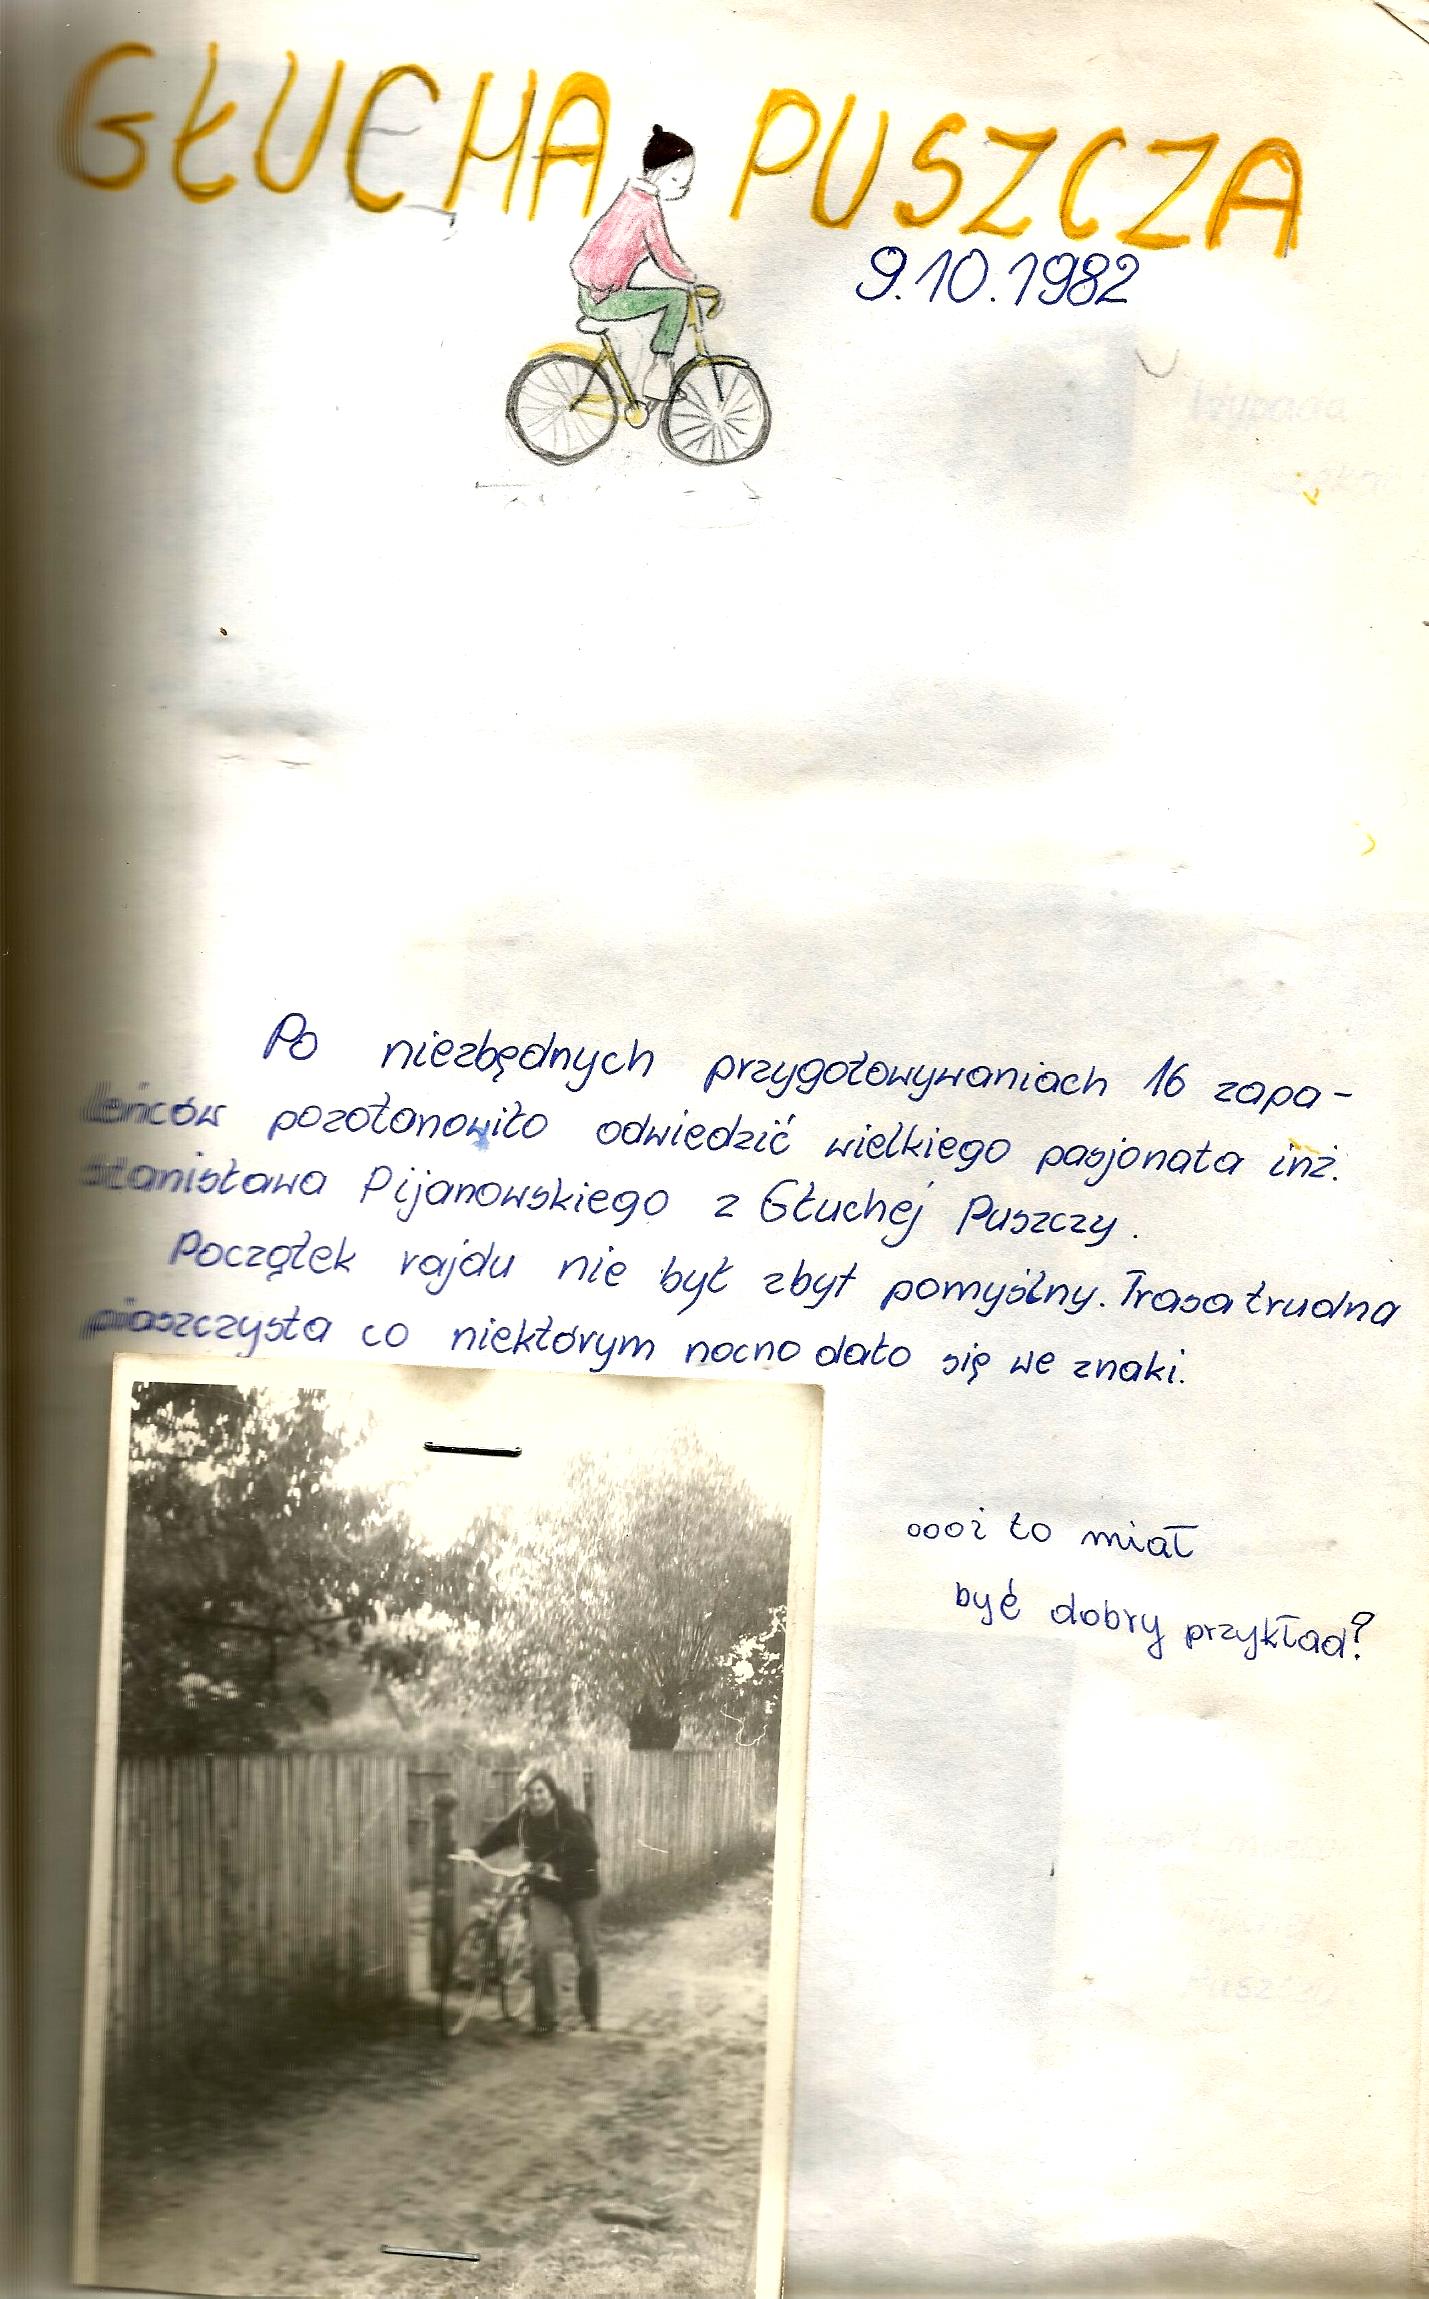 GŁUCHA PUSZCZA
9.10.1982
Po niezbędnych przygotowywaniach 16 zapa-
leńców pozostanowiło odwiedzić wielkiego pasjonata inż.
Stanisława Pijanowskiego z Głuchej Puszczy.
Początek rajdu nie był zbyt pomyślny. Trasa trudna
piaszczysta co niektórym nocno dało się we znaki.
oooi to miał
być dobry przykład?